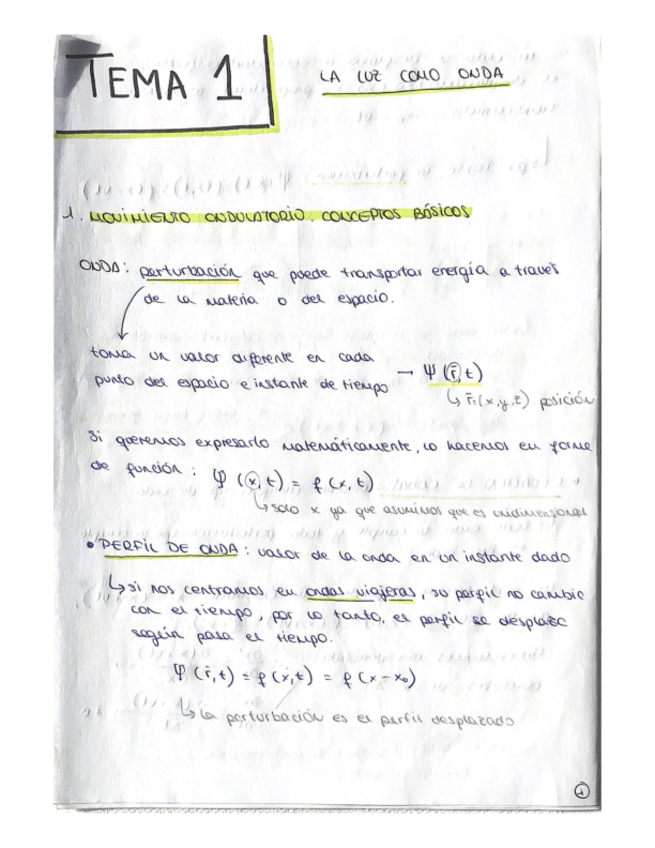 TEMA 1
LA LUZ COMO ONDA
1. MOVIMIENTO ONDULATORIO CONCEPTOS BÁSICOS
ONDA: perturbación que puede transportar energía a través
de la materia o del espacio.
toma un valor diferente en cada
punto del espacio e instante de tiempo → Ψ (r̄, t)
↳ r̄=(x,y,z) posición
Si queremos expresarlo matemáticamente, lo hacemos en forma
de función: Ψ (x,t) = f (x,t)
↳ solo x ya que asumimos que es unidimensional
• PERFIL DE ONDA: valor de la onda en un instante dado
↳ si nos centramos en ondas viajeras, su perfil no cambia
con el tiempo, por lo tanto, el perfil se desplaza
según pasa el tiempo.
Ψ (r̄,t) = f (x,t) = f (x-x₀)
↳ la perturbación es el perfil desplazado
1